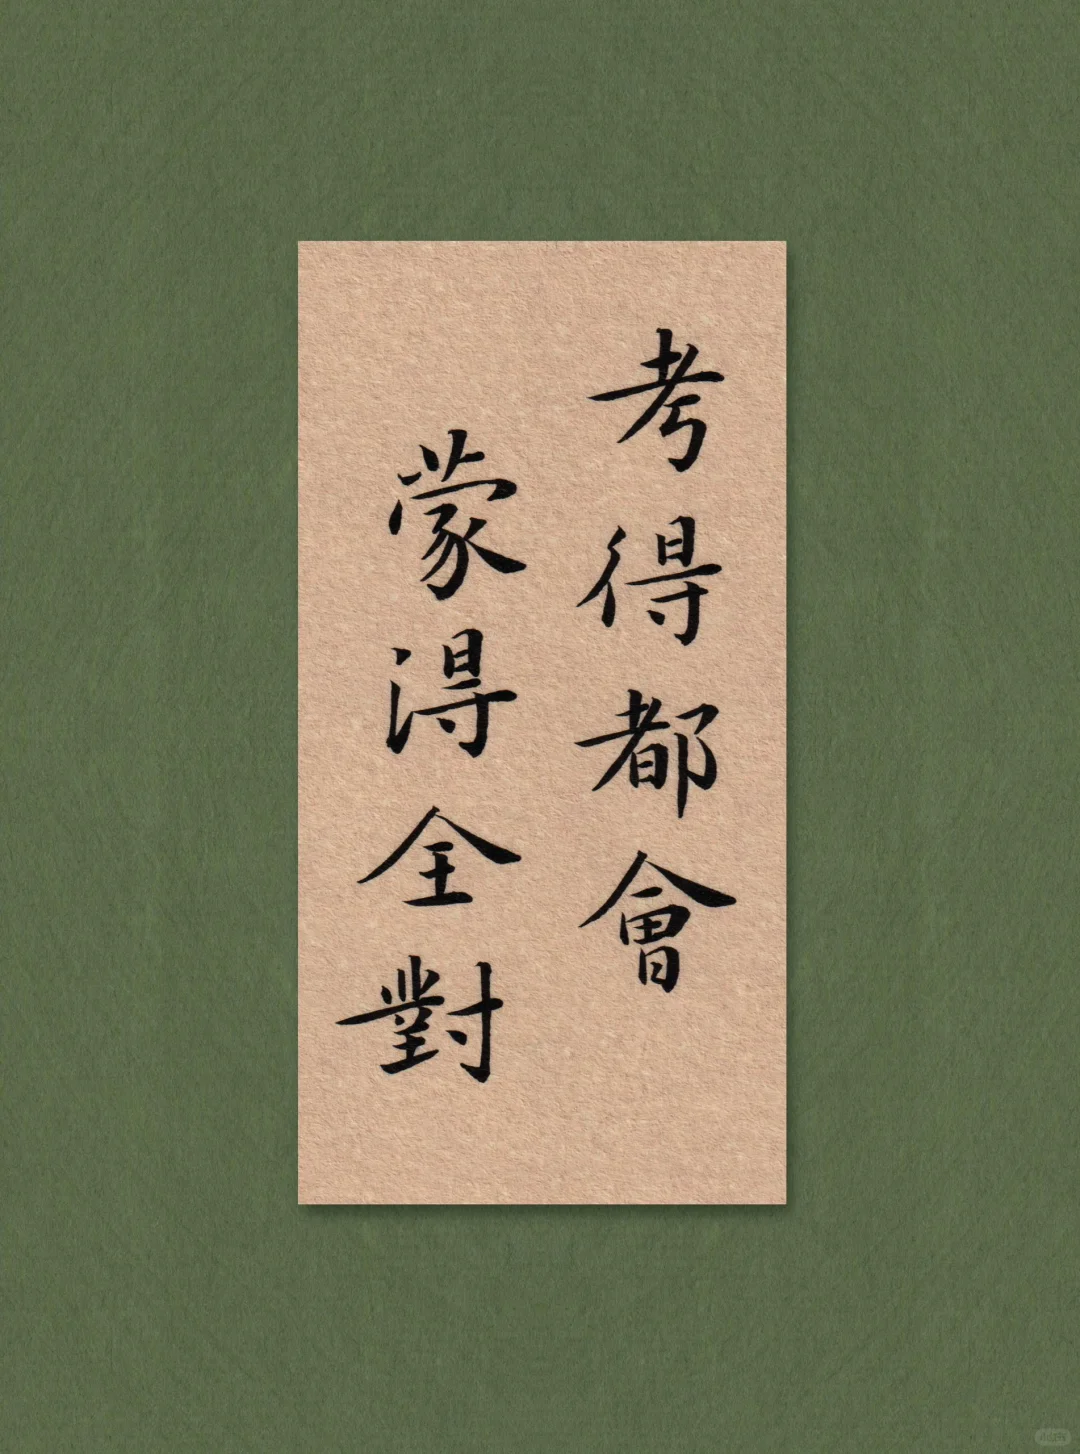 考得都會
蒙得全對